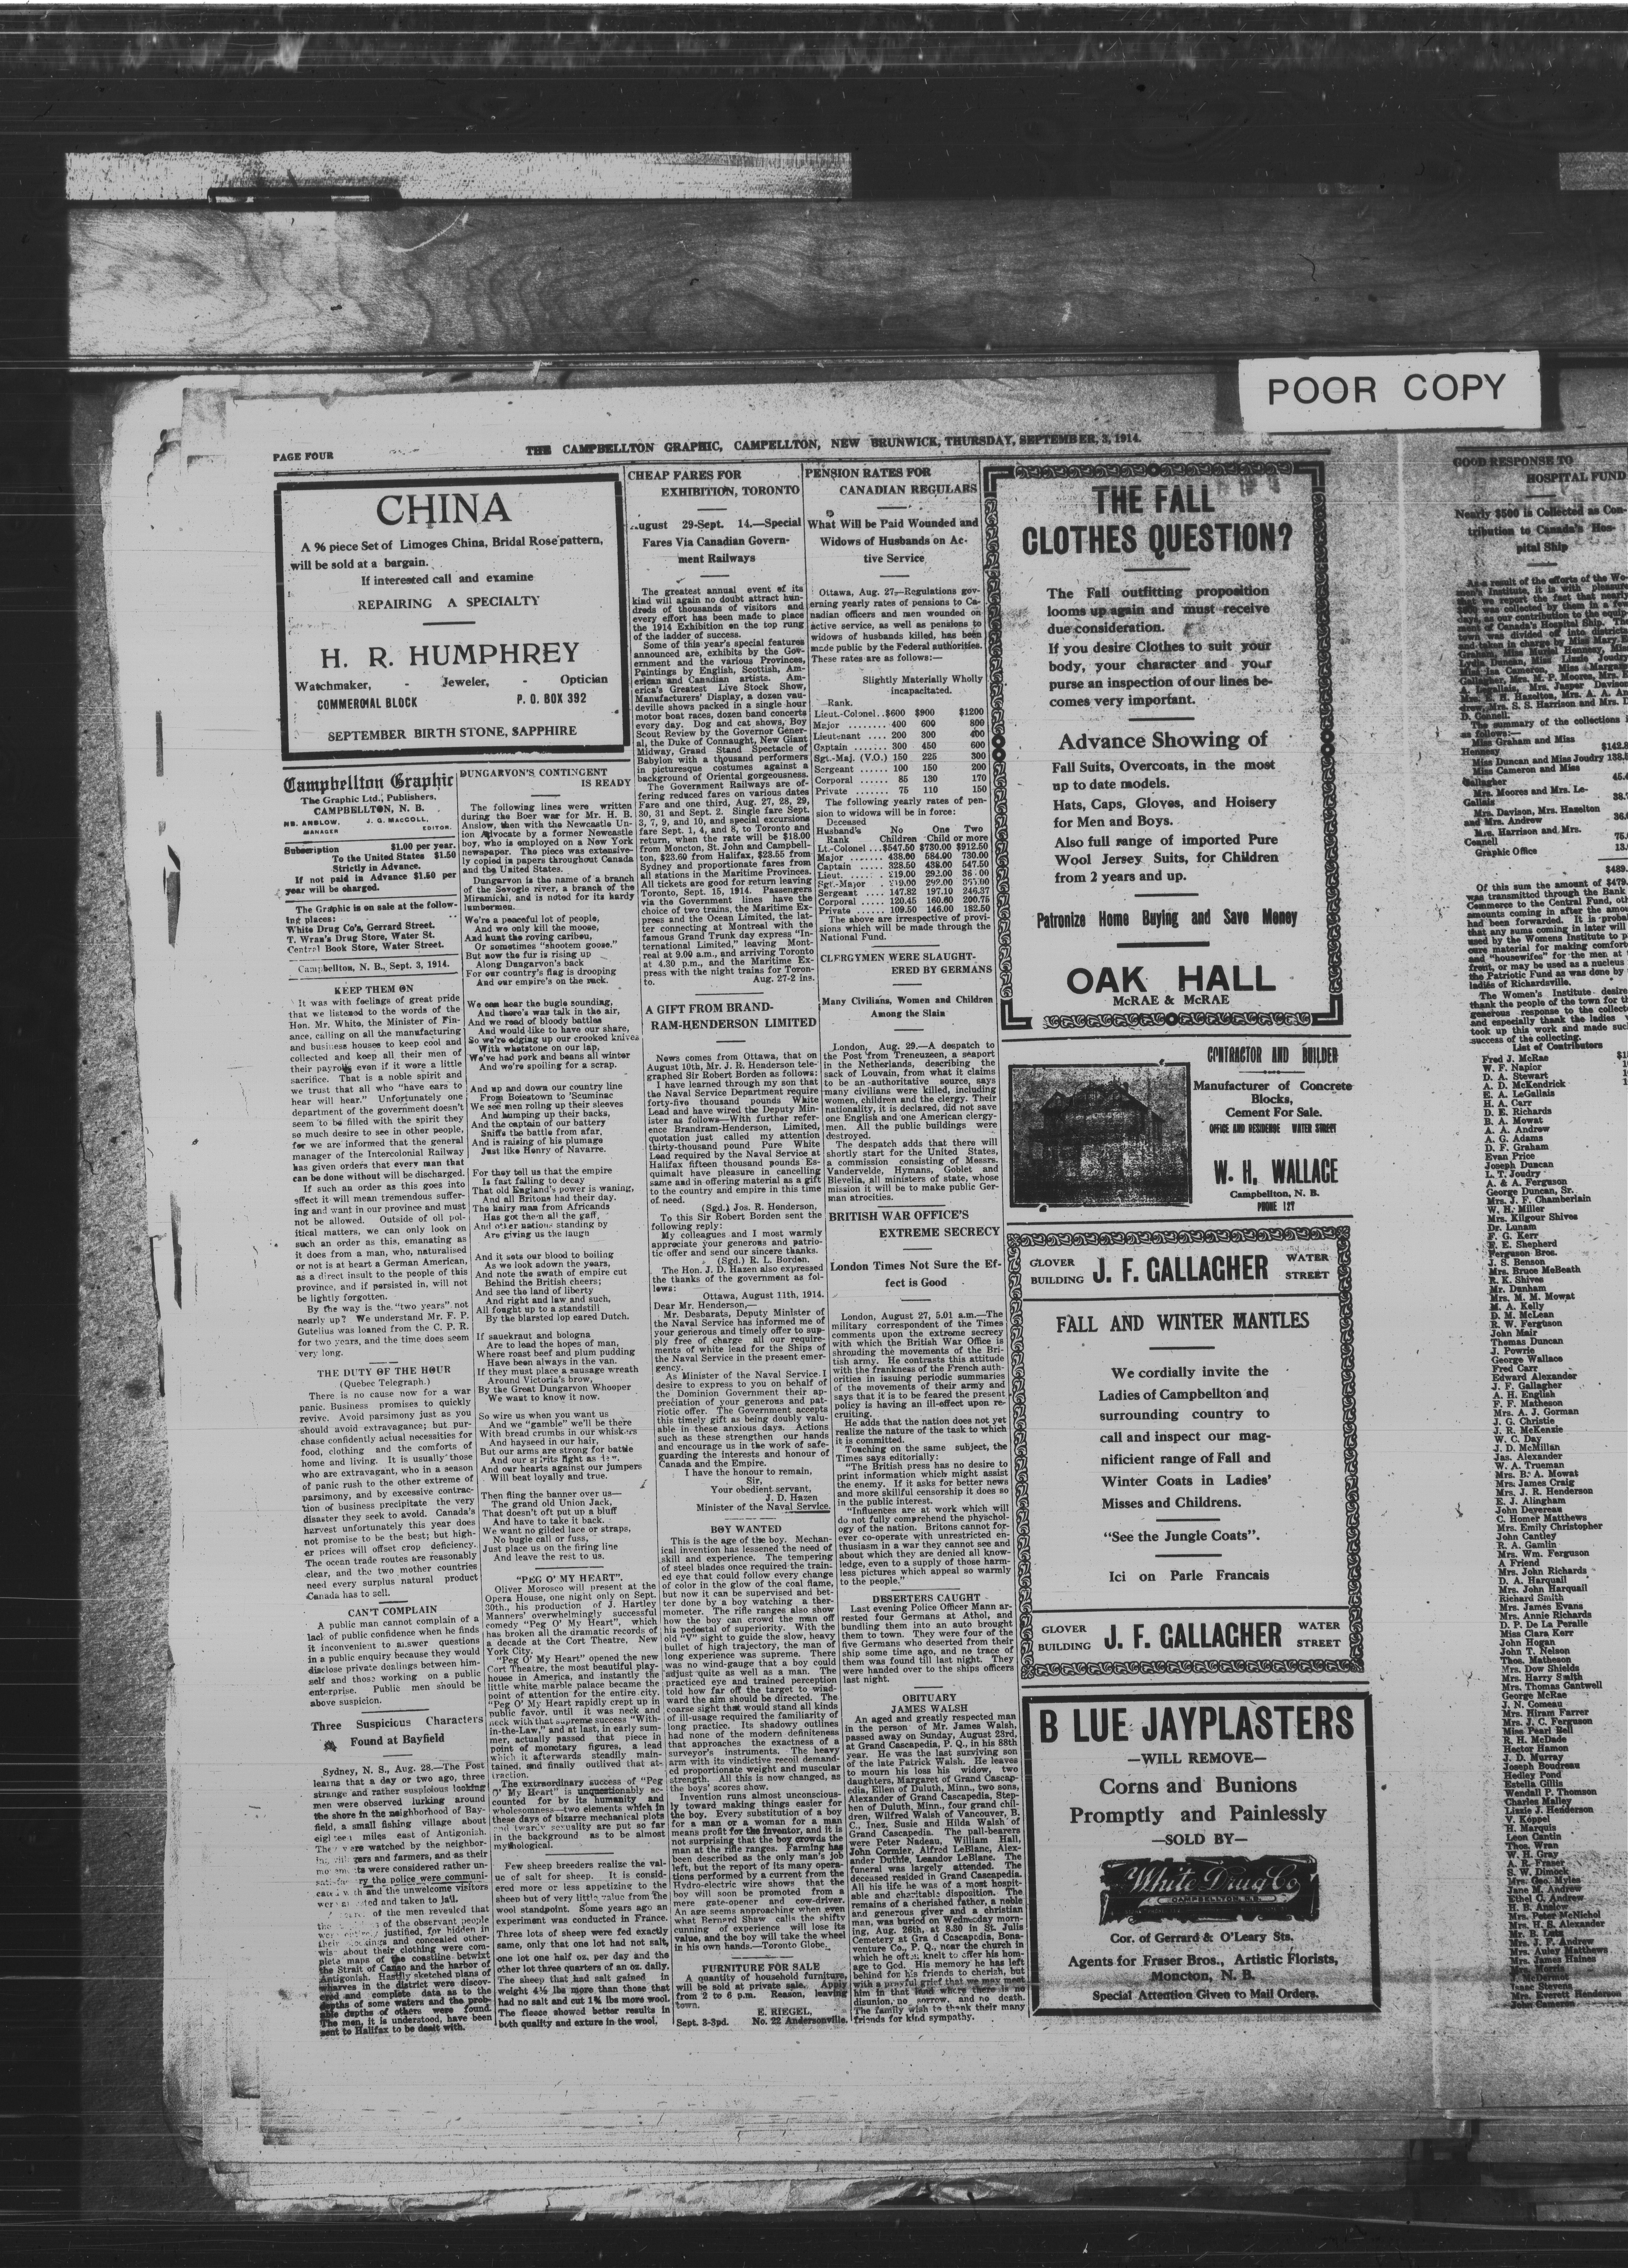 POOR COPY
PAGE FOUR
THE CAMPBELLTON GRAPHIC, CAMPELLTON, NEW BRUNWICK, THURSDAY, SEPTEMBER, 3, 1914.
CHINA
A 96 piece Set of Limoges China, Bridal Rose pattern,
will be sold at a bargain.
If interested call and examine
REPAIRING A SPECIALTY
H. R. HUMPHREY
Watchmaker, - Jeweler, - Optician
COMMERCIAL BLOCK P. O. BOX 392
SEPTEMBER BIRTH STONE, SAPPHIRE
Campbellton Graphic
The Graphic Ltd., Publishers,
CAMPBELLTON, N. B.
HB. ANSLOW, J. G. MACCOLL,
MANAGER EDITOR.
Subscription $1.00 per year.
To the United States $1.50
Strictly in Advance.
If not paid in Advance $1.50 per
year will be charged.
The Graphic is on sale at the follow-
ing places:
White Drug Co's, Gerrard Street.
T. Wran's Drug Store, Water St.
Central Book Store, Water Street.
Campbellton, N. B., Sept. 3, 1914.
KEEP THEM ON
It was with feelings of great pride
that we listened to the words of the
Hon. Mr. White, the Minister of Fin-
ance, calling on all the manufacturing
and business houses to keep cool and
collected and keep all their men of
their payrolls even if it were a little
sacrifice. That is a noble spirit and
we trust that all who "have ears to
hear will hear." Unfortunately one
department of the government doesn't
seem to be filled with the spirit they
so much desire to see in other people,
for we are informed that the general
manager of the Intercolonial Railway
has given orders that every man that
can be done without will be discharged.
If such an order as this goes into
effect it will mean tremendous suffer-
ing and want in our province and must
not be allowed. Outside of all pol-
itical matters, we can only look on
such an order as this, emanating as
it does from a man, who, naturalised
or not is at heart a German American,
as a direct insult to the people of this
province, and if persisted in, will not
be lightly forgotten.
By the way is the "two years" not
nearly up? We understand Mr. F. P.
Gutelius was loaned from the C. P. R.
for two years, and the time does seem
very long.
THE DUTY OF THE HOUR
(Quebec Telegraph.)
There is no cause now for a war
panic. Business promises to quickly
revive. Avoid parsimony just as you
should avoid extravagance; but pur-
chase confidently actual necessities for
food, clothing and the comforts of
home and living. It is usually those
who are extravagant, who in a season
of panic rush to the other extreme of
parsimony, and by excessive contrac-
tion of business precipitate the very
disaster they seek to avoid. Canada's
harvest unfortunately this year does
not promise to be the best; but high-
er prices will offset crop deficiency.
The ocean trade routes are reasonably
clear, and the two mother countries
need every surplus natural product
Canada has to sell.
CAN'T COMPLAIN
A public man cannot complain of a
lack of public confidence when he finds
it inconvenient to answer questions
in a public enquiry because they would
disclose private dealings between him-
self and those working on a public
enterprise. Public men should be
above suspicion.
Three Suspicious Characters
Found at Bayfield
Sydney, N. S., Aug. 28.—The Post
learns that a day or two ago, three
strange and rather suspicious looking
men were observed lurking around
the shore in the neighborhood of Bay-
field, a small fishing village about
eighteen miles east of Antigonish.
They were watched by the neighbor-
ing villagers and farmers, and as their
movements were considered rather un-
satisfactory the police were communi-
cated with and the unwelcome visitors
were arrested and taken to jail.
of the men revealed that
the of the observant people
were justified, for hidden in
their stockings and concealed other-
wise about their clothing were com-
plete maps of the coastline betwixt
the Strait of Canso and the harbor of
Antigonish. Hastily sketched plans of
wharves in the district were discov-
ered and complete data as to the
depths of some waters and the prob-
able depths of others were found.
The men, it is understood, have been
sent to Halifax to be dealt with.
DUNGARVON'S CONTINGENT
IS READY
The following lines were written
during the Boer war for Mr. H. B.
Anslow, then with the Newcastle Un-
ion Advocate by a former Newcastle
boy, who is employed on a New York
newspaper. The piece was extensive-
ly copied in papers throughout Canada
and the United States.
Dungarvon is the name of a branch
of the Sevogle river, a branch of the
Miramichi, and is noted for its hardy
lumbermen.
We're a peaceful lot of people,
And we only kill the moose,
And hunt the roving caribou,
Or sometimes "shootem goose."
But now the fur is rising up
Along Dungarvon's back
For our country's flag is drooping
And our empire's on the rack.
We can hear the bugle sounding,
And there's war talk in the air,
And we read of bloody battles
And would like to have our share,
So we're edging up our crooked knives
With whetstone on our lap,
We've had pork and beans all winter
And we're spoiling for a scrap.
And up and down our country line
From Boiestown to 'Scuminac
We see men roling up their sleeves
And humping up their backs,
And the captain of our battery
Sniffs the battle from afar,
And is raising of his plumage
Just like Henry of Navarre.
For they tell us that the empire
Is fast falling to decay
That old England's power is waning,
And all Britons had their day.
The hairy man from Africands
Has got them all the gaff,
And other nations standing by
Are giving us the laugh
And it sets our blood to boiling
As we look adown the years,
And note the swath of empire cut
Behind the British cheers;
And see the land of liberty
And right and law and such,
All fought up to a standstill
By the blarsted lop eared Dutch.
If sauekraut and bologna
Are to lead the hopes of man,
Where roast beef and plum pudding
Have been always in the van.
If they must place a sausage wreath
Around Victoria's brow,
By the Great Dungarvon Whooper
We want to know it now.
So wire us when you want us
And we "gamble" we'll be there
With bread crumbs in our whiskers
And hayseed in our hair,
But our arms are strong for battle
And our spirits light as
And our hearts against our jumpers
Will beat loyally and true.
Then fling the banner over us—
The grand old Union Jack,
That doesn't oft put up a bluff
And have to take it back.
We want no gilded lace or straps,
No bugle call or fuss,
Just place us on the firing line
And leave the rest to us.
"PEG O' MY HEART".
Oliver Morosco will present at the
Opera House, one night only on Sept.
30th., his production of J. Hartley
Manners' overwhelmingly successful
comedy "Peg O' My Heart", which
has broken all the dramatic records of
a decade at the Cort Theatre, New
York City.
"Peg O' My Heart" opened the new
Cort Theatre, the most beautiful play-
house in America, and instantly the
little white marble palace became the
point of attention for the entire city.
"Peg O' My Heart rapidly crept up in
public favor, until it was neck and
neck with that supreme success "With-
in-the-Law," and at last, in early sum-
mer, actually passed that piece in
point of monetary figures, a lead
which it afterwards steadily main-
tained, and finally outlived that at-
traction.
The extraordinary success of "Peg
O' My Heart" is unquestionably ac-
counted for by its humanity and
wholesomness—two elements which in
these days of bizarre mechanical plots
and tawdry sexuality are put so far
in the background as to be almost
mythological.
Few sheep breeders realize the val-
ue of salt for sheep. It is consid-
ered more or less appetizing to the
sheep but of very little value from the
wool standpoint. Some years ago an
experiment was conducted in France.
Three lots of sheep were fed exactly
same, only that one lot had not salt,
one lot one half oz. per day and the
other lot three quarters of an oz. daily.
The sheep that had salt gained in
weight 4½ lbs more than those that
had no salt and cut 1¾ lbs more wool.
The fleece showed better results in
both quality and exture in the wool.
CHEAP FARES FOR
EXHIBITION, TORONTO
August 29-Sept. 14.—Special
Fares Via Canadian Govern-
ment Railways
The greatest annual event of its
kind will again no doubt attract hun-
dreds of thousands of visitors and
every effort has been made to place
the 1914 Exhibition on the top rung
of the ladder of success.
Some of this year's special features
announced are, exhibits by the Gov-
ernment and the various Provinces,
Paintings by English, Scottish, Am-
erican and Canadian artists. Am-
erica's Greatest Live Stock Show,
Manufacturers' Display, a dozen vau-
deville shows packed in a single hour
motor boat races, dozen band concerts
every day. Dog and cat shows, Boy
Scout Review by the Governor Gener-
al, the Duke of Connaught, New Giant
Midway, Grand Stand Spectacle of
Babylon with a thousand performers
in picturesque costumes against a
background of Oriental gorgeousness.
The Government Railways are of-
fering reduced fares on various dates
Fare and one third, Aug. 27, 28, 29,
30, 31 and Sept. 2. Single fare Sept.
3, 7, 9, and 10, and special excursions
fare Sept. 1, 4, and 8, to Toronto and
return, when the rate will be $18.00
from Moncton, St. John and Campbell-
ton, $23.60 from Halifax, $23.55 from
Sydney and proportionate fares from
all stations in the Maritime Provinces.
All tickets are good for return leaving
Toronto, Sept. 15, 1914. Passengers
via the Government lines have the
choice of two trains, the Maritime Ex-
press and the Ocean Limited, the lat-
ter connecting at Montreal with the
famous Grand Trunk day express "In-
ternational Limited," leaving Mont-
real at 9.00 a.m., and arriving Toronto
at 4.30 p.m., and the Maritime Ex-
press with the night trains for Toron-
to. Aug. 27-2 ins.
A GIFT FROM BRAND-
RAM-HENDERSON LIMITED
News comes from Ottawa, that on
August 10th, Mr. J. R. Henderson tele-
graphed Sir Robert Borden as follows:
I have learned through my son that
the Naval Service Department require
forty-five thousand pounds White
Lead and have wired the Deputy Min-
ister as follows—With further refer-
ence Brandram-Henderson, Limited,
quotation just called my attention
thirty-thousand pound Pure White
Lead required by the Naval Service at
Halifax fifteen thousand pounds Es-
quimalt have pleasure in cancelling
same and in offering material as a gift
to the country and empire in this time
of need.
(Sgd.) Jos. R. Henderson,
To this Sir Robert Borden sent the
following reply:
My colleagues and I most warmly
appreciate your generous and patrio-
tic offer and send our sincere thanks.
(Sgd.) R. L. Borden.
The Hon. J. D. Hazen also expressed
the thanks of the government as fol-
lows:
Ottawa, August 11th, 1914.
Dear Mr. Henderson,—
Mr. Desbarats, Deputy Minister of
the Naval Service has informed me of
your generous and timely offer to sup-
ply free of charge all our require-
ments of white lead for the Ships of
the Naval Service in the present emer-
gency.
As Minister of the Naval Service I
desire to express to you on behalf of
the Dominion Government their ap-
preciation of your generous and pat-
riotic offer. The Government accepts
this timely gift as being doubly valu-
able in these anxious days. Actions
such as these strengthen our hands
and encourage us in the work of safe-
guarding the interests and honour of
Canada and the Empire.
I have the honour to remain,
Sir,
Your obedient servant,
J. D. Hazen
Minister of the Naval Service.
BOY WANTED
This is the age of the boy. Mechan-
ical invention has lessened the need of
skill and experience. The tempering
of steel blades once required the train-
ed eye that could follow every change
of color in the glow of the coal flame,
but now it can be supervised and bet-
ter done by a boy watching a ther-
mometer. The rifle ranges also show
how the boy can crowd the man off
his pedestal of superiority. With the
old "V" sight to guide the slow, heavy
bullet of high trajectory, the man of
long experience was supreme. There
was no wind-gauge that a boy could
adjust quite as well as a man. The
practiced eye and trained perception
told how far off the target to wind-
ward the aim should be directed. The
coarse sight that would stand all kinds
of ill-usage required the familiarity of
long practice. Its shadowy outlines
had none of the modern definiteness
that approaches the exactness of a
surveyor's instruments. The heavy
arm with its vindictive recoil demand-
ed proportionate weight and muscular
strength. All this is now changed, as
the boys' scores show.
Invention runs almost unconscious-
ly toward making things easier for
the boy. Every substitution of a boy
for a man or a woman for a man
means profit for the inventor, and it is
not surprising that the boy crowds the
man at the rifle ranges. Farming has
been described as the only man's job
left, but the report of its many opera-
tions performed by a current from the
Hydro-electric wire shows that the
boy will soon be promoted from a
mere gate-opener and cow-driver.
An age seems approaching when even
what Bernard Shaw calls the shifty
cunning of experience will lose its
value, and the boy will take the wheel
in his own hands.—Toronto Globe.
FURNITURE FOR SALE
A quantity of household furniture,
will be sold at private sale. Apply
from 2 to 6 p.m. Reason, leaving
town.
E. RIEGEL,
Sept. 3-3pd. No. 22 Andersonville.
PENSION RATES FOR
CANADIAN REGULARS
What Will be Paid Wounded and
Widows of Husbands on Ac-
tive Service
Ottawa, Aug. 27,—Regulations gov-
erning yearly rates of pensions to Ca-
nadian officers and men wounded on
active service, as well as pensions to
widows of husbands killed, has been
made public by the Federal authorities.
These rates are as follows:—
Slightly Materially Wholly
incapacitated.
Rank.
Lieut.-Colonel..$600 $900 $1200
Major ........ 400 600 800
Lieutenant .... 200 300 400
Captain ...... 300 450 600
Sgt.-Maj. (V.O.) 150 225 300
Sergeant ..... 100 150 200
Corporal ...... 85 130 170
Private ....... 75 110 150
The following yearly rates of pen-
sion to widows will be in force:
Deceased
Husband's No One Two
Rank Children Child or more
Lt.-Colonel ...$547.50 $730.00 $912.50
Major ....... 438.00 584.00 730.00
Captain ...... 328.50 438.00 547.50
Lieut. ..... 219.00 292.00
Sgt.-Major .. 219.00 292.00
Sergeant .... 147.82 197.10 246.37
Corporal .... 120.45 160.60 200.75
Private ..... 109.50 146.00 182.50
The above are irrespective of provi-
sions which will be made through the
National Fund.
CLERGYMEN WERE SLAUGHT-
ERED BY GERMANS
Many Civilians, Women and Children
Among the Slain
London, Aug. 29.—A despatch to
the Post from Treneuzeen, a seaport
in the Netherlands, describing the
sack of Louvain, from what it claims
to be an authoritative source, says
many civilians were killed, including
women, children and the clergy. Their
nationality, it is declared, did not save
one English and one American clergy-
men. All the public buildings were
destroyed.
The despatch adds that there will
shortly start for the United States,
a commission consisting of Messrs.
Vandervelde, Hymans, Goblet and
Blevelia, all ministers of state, whose
mission it will be to make public Ger-
man atrocities.
BRITISH WAR OFFICE'S
EXTREME SECRECY
London Times Not Sure the Ef-
fect is Good
London, August 27, 5.01 a.m.—The
military correspondent of the Times
comments upon the extreme secrecy
with which the British War Office is
shrouding the movements of the Bri-
tish army. He contrasts this attitude
with the frankness of the French auth-
orities in issuing periodic summaries
of the movements of their army and
says that it is to be feared the present
policy is having an ill-effect upon re-
cruiting.
He adds that the nation does not yet
realize the nature of the task to which
it is committed.
Touching on the same subject, the
Times says editorially:
"The British press has no desire to
print information which might assist
the enemy. If it asks for better news
and more skillful censorship it does so
in the public interest.
"Influences are at work which will
do not fully comprehend the physchol-
ogy of the nation. Britons cannot for-
ever co-operate with unrestricted en-
thusiasm in a war they cannot see and
about which they are denied all know-
ledge, even to a supply of those harm-
less pictures which appeal so warmly
to the people."
DESERTERS CAUGHT
Last evening Police Officer Mann ar-
rested four Germans at Athol, and
bundling them into an auto brought
them to town. They were four of the
five Germans who deserted from their
ship some time ago, and no trace of
them was found till last night. They
were handed over to the ships officers
last night.
OBITUARY
JAMES WALSH
An aged and greatly respected man
in the person of Mr. James Walsh,
passed away on Sunday, August 23rd,
at Grand Cascapedia, P. Q., in his 88th
year. He was the last surviving son
of the late Patrick Walsh. He leaves
to mourn his loss his widow, two
daughters, Margaret of Grand Cascap-
edia, Ellen of Duluth, Minn., two sons,
Alexander of Grand Cascapedia, Step-
hen of Duluth, Minn., four grand chil-
dren, Wilfred Walsh of Vancouver, B.
C., Inez, Susie and Hilda Walsh of
Grand Cascapedia. The pall-bearers
were Peter Nadeau, William Hall,
John Cormier, Alfred LeBlanc, Alex-
ander Duthie, Leandor LeBlanc. The
funeral was largely attended. The
deceased resided in Grand Cascapedia.
All his life he was of a most hospit-
able and charitable disposition. The
remains of a cherished father, a noble
and generous giver and a christian
man, was buried on Wednesday morn-
ing, Aug. 26th, at 8.30 in St. Julis
Cemetery at Grand Cascapedia, Bona-
venture Co., P. Q., near the church in
which he often knelt to offer his hom-
age to God. His memory he has left
behind for his friends to cherish, but
with a prayful grief that we may meet
him in that land where there is no
disunion, no sorrow, and no death.
The family wish to thank their many
friends for kind sympathy.
THE FALL
CLOTHES QUESTION?
The Fall outfitting proposition
looms up again and must receive
due consideration.
If you desire Clothes to suit your
body, your character and your
purse an inspection of our lines be-
comes very important.
Advance Showing of
Fall Suits, Overcoats, in the most
up to date models.
Hats, Caps, Gloves, and Hoisery
for Men and Boys.
Also full range of imported Pure
Wool Jersey Suits, for Children
from 2 years and up.
Patronize Home Buying and Save Money
OAK HALL
McRAE & McRAE
CONTRACTOR AND BUILDER
Manufacturer of Concrete
Blocks,
Cement For Sale.
OFFICE AND RESIDENCE WATER STREET
W. H. WALLACE
Campbellton, N. B.
PHONE 127
GLOVER BUILDING J. F. GALLAGHER WATER STREET
FALL AND WINTER MANTLES
We cordially invite the
Ladies of Campbellton and
surrounding country to
call and inspect our mag-
nificient range of Fall and
Winter Coats in Ladies'
Misses and Childrens.
"See the Jungle Coats".
Ici on Parle Francais
GLOVER BUILDING J. F. GALLAGHER WATER STREET
B LUE JAYPLASTERS
—WILL REMOVE—
Corns and Bunions
Promptly and Painlessly
—SOLD BY—
White Drug Co
CAMPBELLTON, N.B.
Cor. of Gerrard & O'Leary Sts.
Agents for Fraser Bros., Artistic Florists,
Moncton, N. B.
Special Attention Given to Mail Orders.
GOOD RESPONSE TO
HOSPITAL FUND
Nearly $500 is Collected as Con-
tribution to Canada's Hos-
pital Ship
As a result of the efforts of the Wo-
men's Institute, it is with pleasure
that we report the fact that nearly
$500 was collected by them in a few
days, as our contribution to the equip-
ment of Canada's Hospital Ship. The
town was divided off into districts
and taken in charge by Miss Mary E.
Graham, Miss Muriel Hennesy, Miss
Lydia Duncan, Miss Lizzie Joudry
Miss Isa Cameron, Miss
Gallagher, Mrs. M. P. Moores, Mrs. E.
A. Legallais, Mrs. Jasper Davison
Mrs. E. H. Hazelton, Mrs. A. A. An-
drew, Mrs. S. S. Harrison and Mrs. D.
D. Connell.
The summary of the collections
as follows:—
Miss Graham and Miss
Hennesy $142.8
Miss Duncan and Miss Joudry 138.
Miss Cameron and Miss
Gallagher 45.
Mrs. Moores and Mrs. Le-
Gallais 38.
Mrs. Davison, Mrs. Hazelton
and Mrs. Andrew 36.
Mrs. Harrison and Mrs.
Connell 75.
Graphic Office 13.
$489.
Of this sum the amount of $479.
was transmitted through the Bank
Commerce to the Central Fund, oth
amounts coming in after the amou
had been forwarded. It is probab
that any sums coming in later will
used by the Womens Institute to p
cure material for making comfort
and "housewifes" for the men at
front, or may be used as a nucleus
the Patriotic Fund as was done by
ladies of Richardsville.
The Women's Institute desire
thank the people of the town for th
generous response to the collect
and especially thank the ladies
took up this work and made suc
success of the collecting.
List of Contributors
Fred J. McRae
W. F. Napior
D. A. Stewart
A. D. McKendrick
E. A. LeGallais
H. A. Carr
D. E. Richards
B. A. Mowat
A. A. Andrew
A. G. Adams
D. F. Graham
Evan Price
Joseph Duncan
L. T. Joudry
A. & A. Ferguson
George Duncan, Sr.
Mrs. J. F. Chamberlain
W. H. Miller
Mrs. Kilgour Shives
Dr. Lunam
F. G. Kerr
F. E. Shepherd
Ferguson Bros.
J. S. Benson
Mrs. Bruce McBeath
R. K. Shives
Mr. Denham
Mrs. M. M. Mowat
M. A. Kelly
D. M. McLean
R. W. Ferguson
John Mair
Thomas Duncan
J. Powrie
George Wallace
Fred Carr
Edward Alexander
J. F. Gallagher
A. H. English
F. F. Matheson
Mrs. A. J. Gorman
J. G. Christie
J. R. McKenzie
W. C. Day
J. D. McMillan
Jas. Alexander
W. A. Trueman
Mrs. B. A. Mowat
Mrs. James Craig
Mrs. J. R. Henderson
E. J. Alingham
John Devereau
C. Homer Matthews
Mrs. Emily Christopher
John Cantley
R. A. Gamlin
Mrs. Wm. Ferguson
A Friend
Mrs. John Richards
D. A. Harquail
Mrs. John Harquail
Richard Smith
Mrs. James Evans
Mrs. Annie Richards
D. P. De La Peralle
Miss Clara Kerr
John Hogan
John T. Nelson
Thos. Matheson
Mrs. Dow Shields
Mrs. Harry Smith
Mrs. Thomas Cantwell
George McRae
J. N. Comeau
Mrs. Hiram Farrer
Mrs. J. C. Ferguson
Miss Pearl Bell
R. H. McDade
Hector Hamon
J. D. Murray
Joseph Boudreau
Hedley Pond
Estella Gillis
Wendall P. Thomson
Charles Malley
Lizzie J. Henderson
V. Koppel
H. Marquis
Leon Cantin
Thos. Wran
W. H. Gray
A. R. Fraser
S. W. Dimock
Mrs. Geo. Myles
Jane M. Andrew
Ethel C. Andrew
H. B. Anslow
Mrs. Peter McNichol
Mrs. H. S. Alexander
Mr. B. Lutz
Mrs. J. F. Andrew
Mrs. Auley Matthews
Mrs. James Haines
Mrs. Morris
J. McDermot
Isaac Stevens
Mrs. Everett Henderson
John Cameron